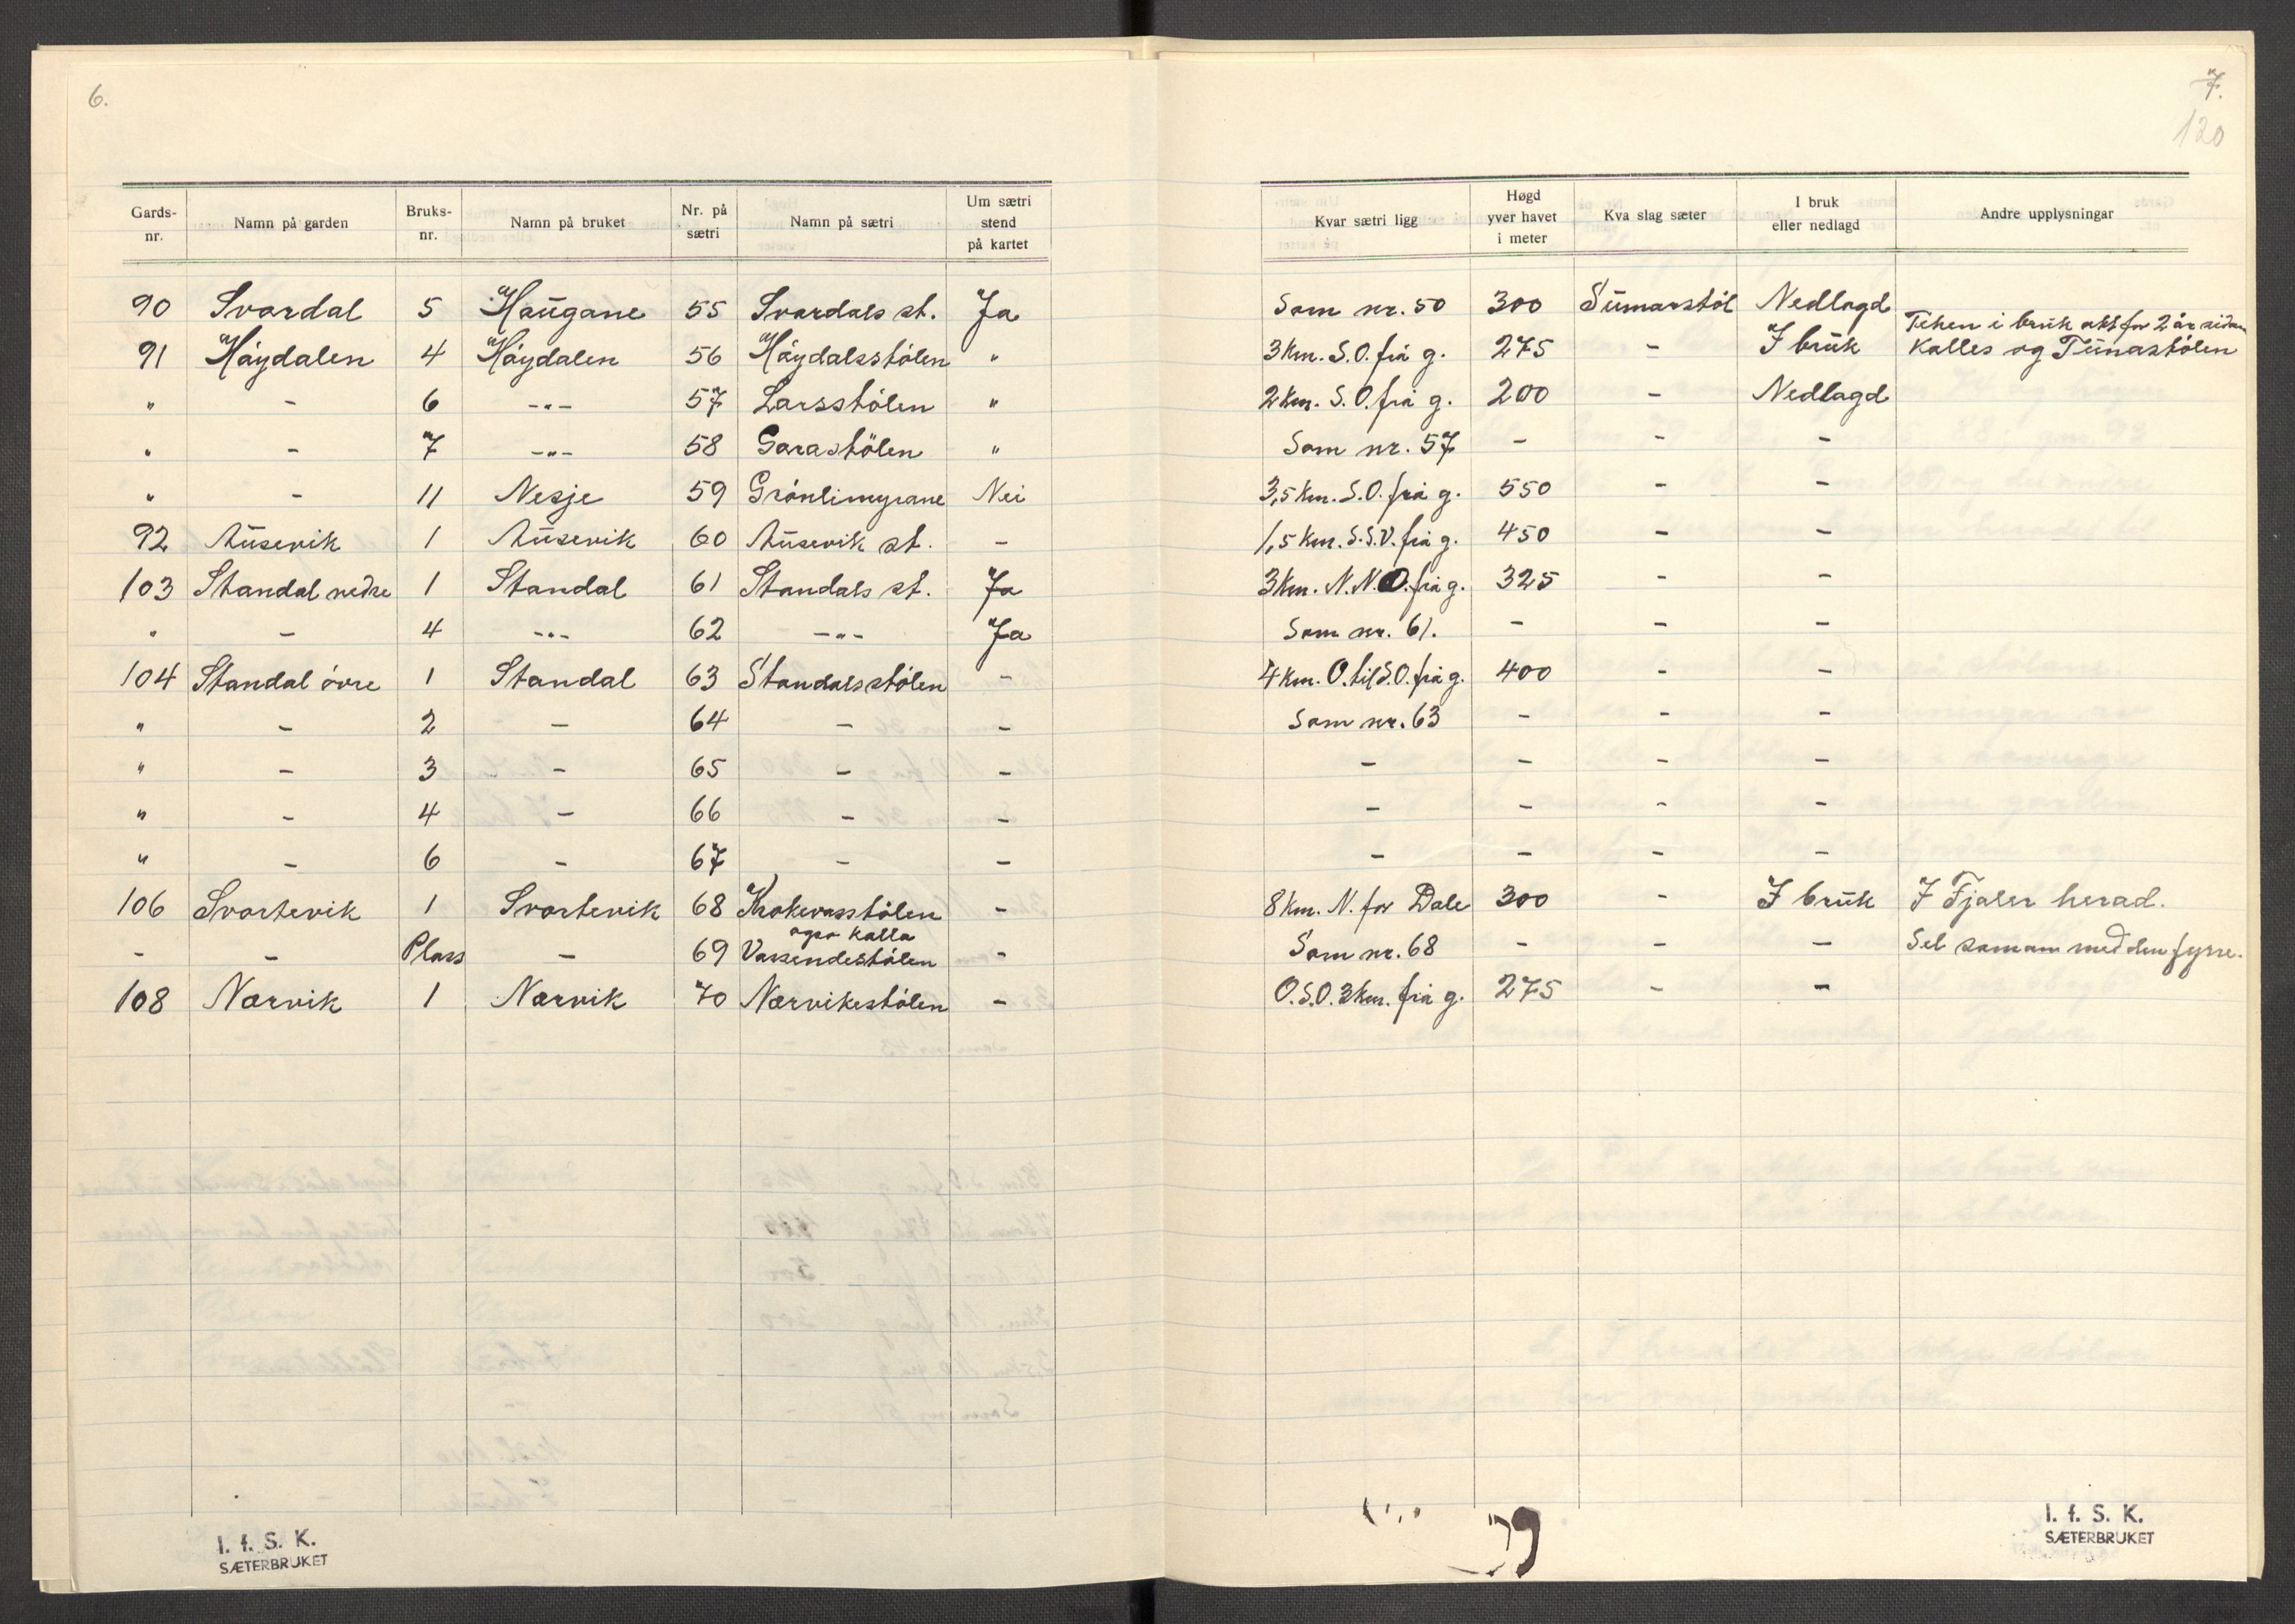 6.
Gards-nr. | Namn på garden | Bruks-nr. | Namn på bruket | Nr. på sætri | Namn på sætri | Um sætri stend på kartet
90 Svardal 5 Haugane 55 Svardals st. Ja
91 Høydalen 4 Høydalen 56 Høydalsstølen "
" - 6 -"- 57 Larsstølen "
" - 7 -"- 58 Garastølen "
" - 11 Nesje 59 Grønlimyrane Nei
92 Ausevik 1 Ausevik 60 Ausevik st. -
103 Standal nedre 1 Standal 61 Standals st. Ja
" - 4 -"- 62 -"- Ja
104 Standal øvre 1 Standal 63 Standalsstølen -
" - 2 - 64 - -
" - 3 - 65 - -
" - 4 - 66 - -
" - 6 - 67 - -
106 Svortevik 1 Svortevik 68 Krokevasstølen -
ogso kalla
- - Plass - 69 Vassendestølen -
108 Narvik 1 Narvik 70 Narvikestølen -
I. f. S. K.
SÆTERBRUKET
7.
120
Kvar sætri ligg | Høgd yver havet i meter | Kva slag sæter | I bruk eller nedlagd | Andre upplysningar
Som nr. 50 300 Sumarstøl Nedlagd
Teken i bruk att for 2 år sidan
3 km. S.O. frå g. 275 - I bruk Kalles og Tunastølen
2 km. S.O. frå g. 200 - Nedlagd
Som nr. 57 - - -
3,5 km. S.O. frå g. 550 - -
1,5 km. S.S.V. frå g. 450 - -
3 km. N.N.O. frå g. 325 - -
Som nr. 61. - - -
4 km. O. til S.O. frå g. 400 - -
Som nr. 63 - - -
- - - -
- - - -
- - - -
8 km. N. for Dale 300 - I bruk I Fjaler herad.
Som nr. 68 - - - Sel saman med den fyrre.
O.S.O. 3 km. frå g. 275 - -
I. f. S. K.
SÆTERBRUKET